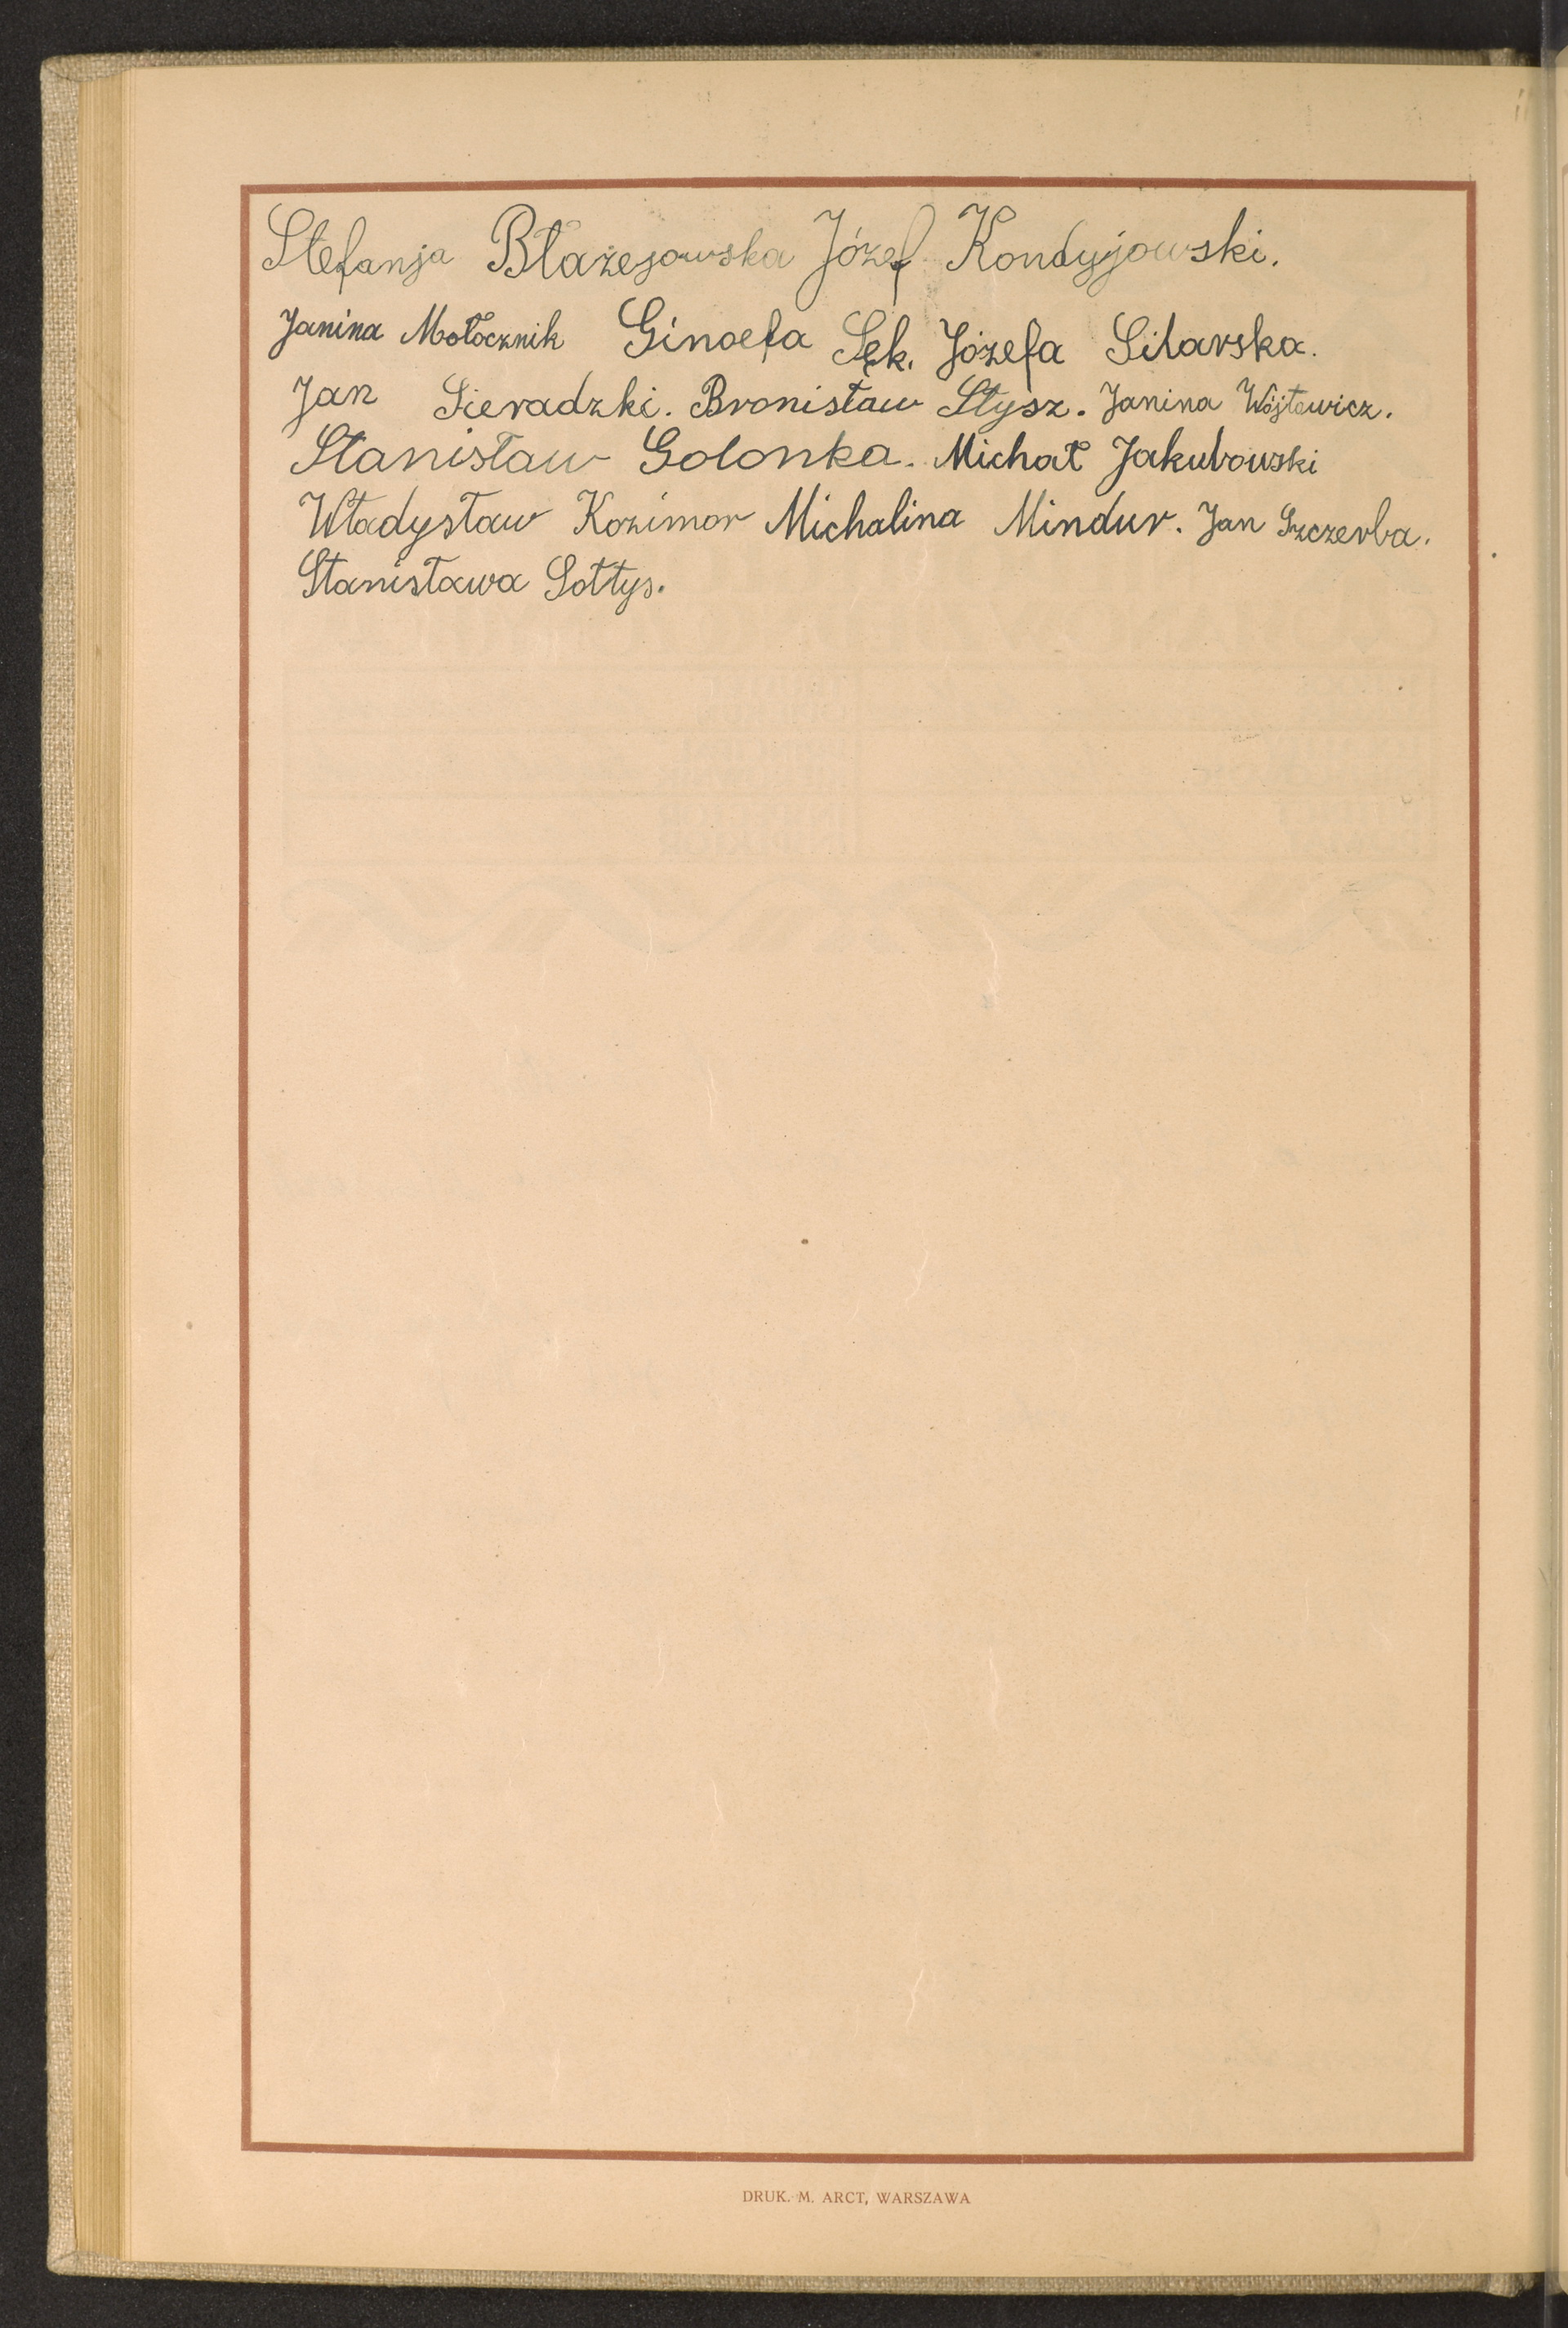 Stefanja Błażejowska Józef Kondyjowski.
Janina Mołocznik Ginoefa Sęk. Józefa Silarska.
Jan Sieradzki. Bronisław Stysz. Janina Wójtowicz.
Stanisław Golonka. Michał Jakubowski
Władysław Kozimor Michalina Mindur. Jan Szczerba.
Stanisława Sołtys.
DRUK. M. ARCT, WARSZAWA